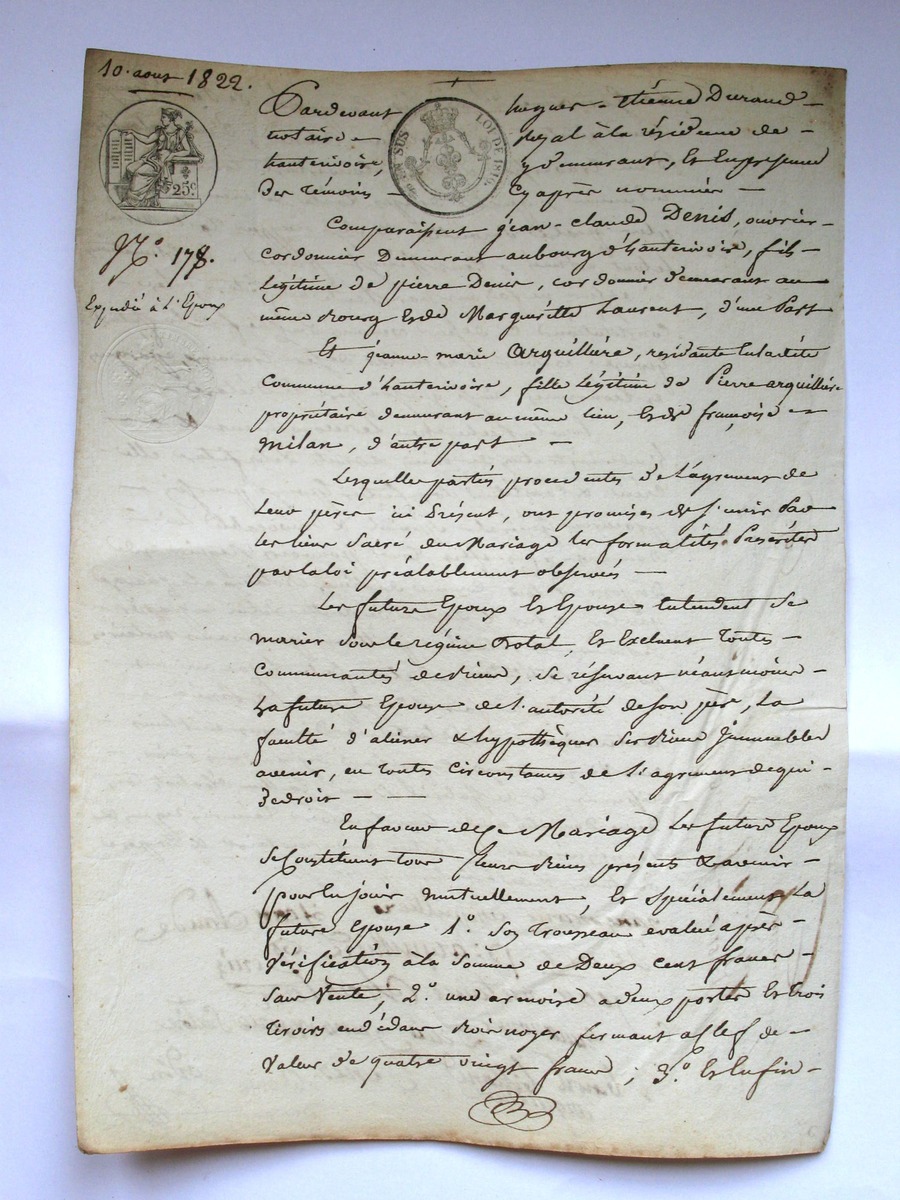 10. aout 1822.
25 c.
LOI DE 1816.
EN SUS
N.o 178.
Expédié à l'Epoux
Pardevant hugues-étienne Durand
notaire royal à la résidence de
hauterivoire, y demeurant, et En présence
Des témoins cy après nommés
Comparaissent jean-claude Denis, ouvrier
cordonnier Demeurant au bourg d'hauterivoire, fils
légitime de pierre Denis, cordonnier demeurant au
même Bourg et de Margueritte Laurent, d'une Part
Et jeanne-marie arquillière, résidante En la dite
Commune d'hauterivoire, fille légitime de Pierre arquillière
propriétaire demeurant au même lieu, et de françoise
milan, d'autre part
Lesquelles parties procédantes de l'agrément de
Leur père ici Présent, ont promises de s'unir Par
les liens Sacré du Mariage les formalités Prescrites
par la loi préalablement observées
Les future Epoux Et Epouse Entendent Se
marier Sous le régime Dotal, Et Excluent Toutes
Communautés de Biens, Se réservant néanmoins
La future Epouse de l'autorité de son père, La
faculté d'aliener & hypothèquer Ses Biens Immeubles
avenir, en toutes circonstances de l'agrément de qui
De droit
En faveur de ce Mariage Les future Epoux
Se Constituent tous Leurs Biens présents & avenir
pour En jouir mutuellement, Et Spécialement La
future Epouse 1.o Son Trousseau évalué après
vérification à la Somme de Deux cent francs
Sans Vente, 2.o une armoire a deux portes Et trois
tiroirs en dedans Bois noyer fermant a Clef de
Valeur de quatre vingt francs; 3.o Et Enfin